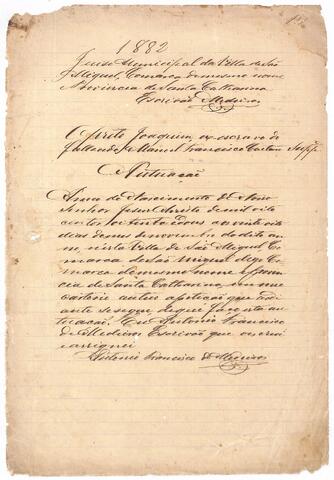 1882
Juizo Municipal da Villa de São
Miguel, Comarca do mesmo nome
Provincia de Santa Catharina
Escrivão Medeiros
O preto Joaquim, ex escravo do
fallecido Manoel Francisco Caetano Supp.
Autuacão
Anno do Nascimento de Nosso
Senhor Jesus Christo de mil oito
centos oitenta e dous aos vinte oito
dias do mes de novembro do dito an
no, nesta Villa de São Miguel Co
marca de São Miguel digo Co
marca do mesmo nome Provin
cia de Santa Catharina, em meu
cartorio autuo a peticão que adi
ante se segue, do que faço esta au
tuacão. Eu Antonio Francisco
de Medeiros Escrivão que escrevi
e assignei
Antonio Francisco de Medeiros